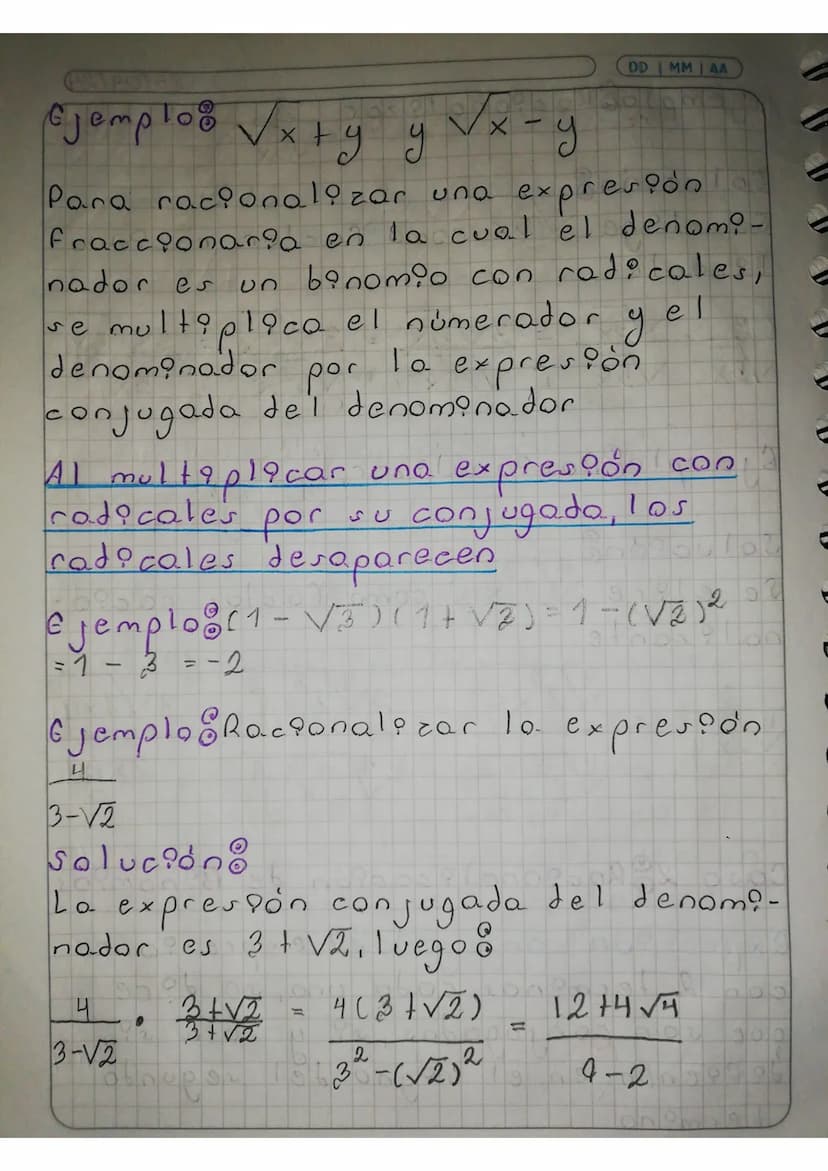 DD | MM | AA
Ejemplo: √x + y y √x - y
Para racionalizar una expresión
fraccionaria en la cual el denomi-
nador es un binomio con radicales,
se multiplica el númerador y el
denominador por la expresión
conjugada del denominador
Al multiplicar una expresión con
radicales por su conjugada, los
radicales desaparecen
Ejemplo: (1 - √3)(1 + √3) = 1 - (√3)²
= 1 - 3 = -2
Ejemplo: Racionalizar la expresión
4
3-√2
Solución:
La expresión conjugada del denomi-
nador es 3 + √2, luego:
4/3-√2 · 3+√2/3+√2 = 4(3+√2)/3²-(√2)² = 12+4√4/9-2